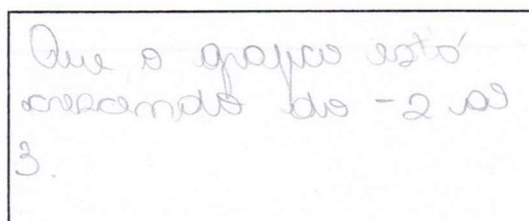 Que o grafico está
crescendo do -2 ao
3.